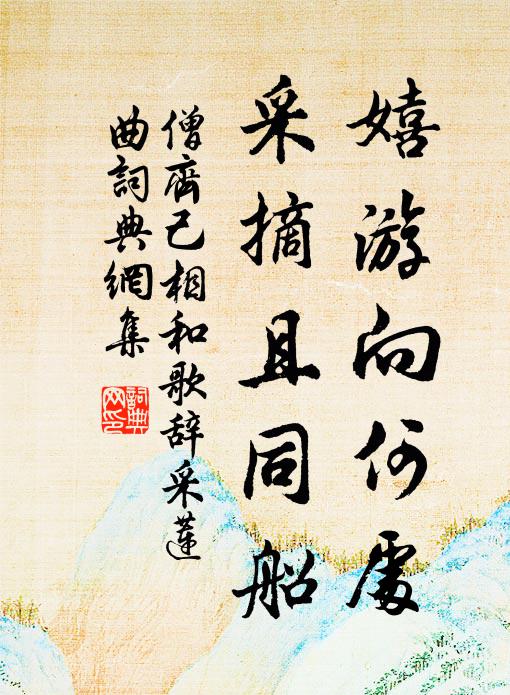 嬉游向何處
采摘且同船
僧齊己相和歌辞采蓮
曲詞典網集
詞典
网印